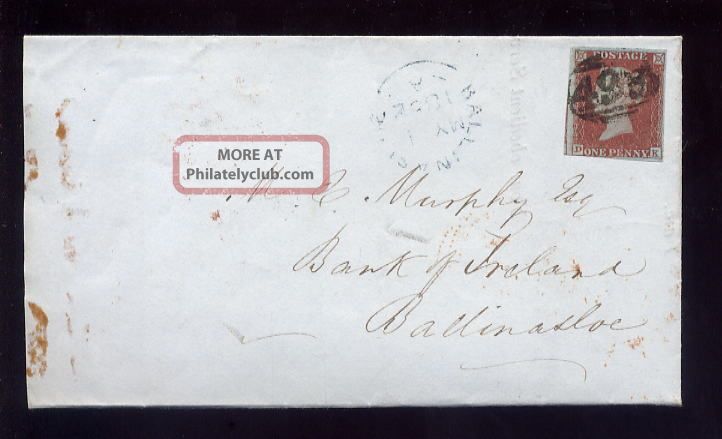 POSTAGE
D ONE PENNY K
BALLINASLOE
MY 1
185
A
MORE AT
Philatelyclub.com
M. C. Murphy Esq
Bank of Ireland
Ballinasloe